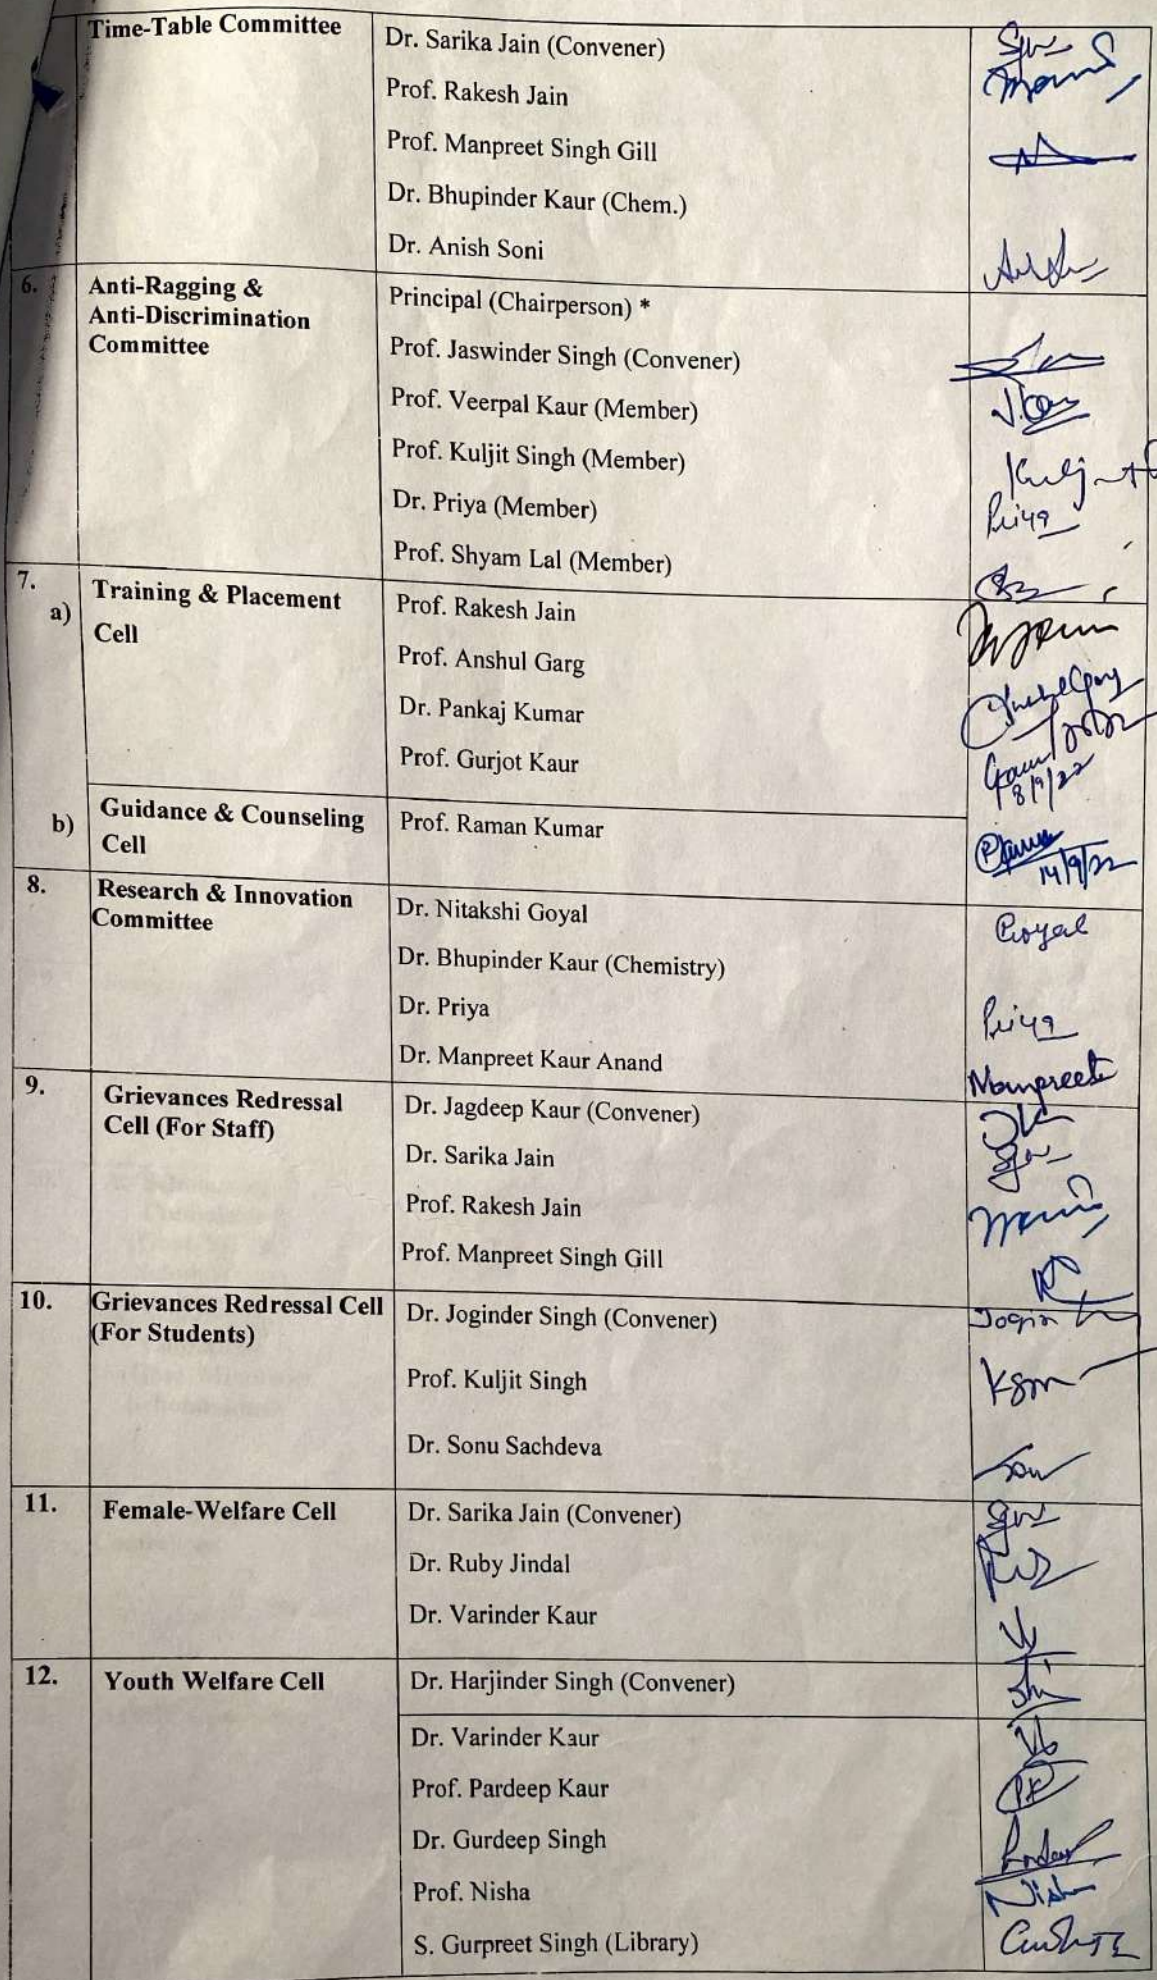 Time-Table Committee
Dr. Sarika Jain (Convener)
Prof. Rakesh Jain
Prof. Manpreet Singh Gill
Dr. Bhupinder Kaur (Chem.)
Dr. Anish Soni
6.
Anti-Ragging &
Anti-Discrimination
Committee
Principal (Chairperson) *
Prof. Jaswinder Singh (Convener)
Prof. Veerpal Kaur (Member)
Prof. Kuljit Singh (Member)
Kuljit
Dr. Priya (Member)
Priya
Prof. Shyam Lal (Member)
7.
a)
Training & Placement
Cell
Prof. Rakesh Jain
Prof. Anshul Garg
Dr. Pankaj Kumar
Prof. Gurjot Kaur
8/9/22
b)
Guidance & Counseling
Cell
Prof. Raman Kumar
14/9/22
8.
Research & Innovation
Committee
Dr. Nitakshi Goyal
Goyal
Dr. Bhupinder Kaur (Chemistry)
Dr. Priya
Priya
Dr. Manpreet Kaur Anand
Manpreet
9.
Grievances Redressal
Cell (For Staff)
Dr. Jagdeep Kaur (Convener)
Dr. Sarika Jain
Prof. Rakesh Jain
Prof. Manpreet Singh Gill
10.
Grievances Redressal Cell
(For Students)
Dr. Joginder Singh (Convener)
Prof. Kuljit Singh
Dr. Sonu Sachdeva
11.
Female-Welfare Cell
Dr. Sarika Jain (Convener)
Dr. Ruby Jindal
Dr. Varinder Kaur
12.
Youth Welfare Cell
Dr. Harjinder Singh (Convener)
Dr. Varinder Kaur
Prof. Pardeep Kaur
PK
Dr. Gurdeep Singh
Prof. Nisha
Nisha
S. Gurpreet Singh (Library)